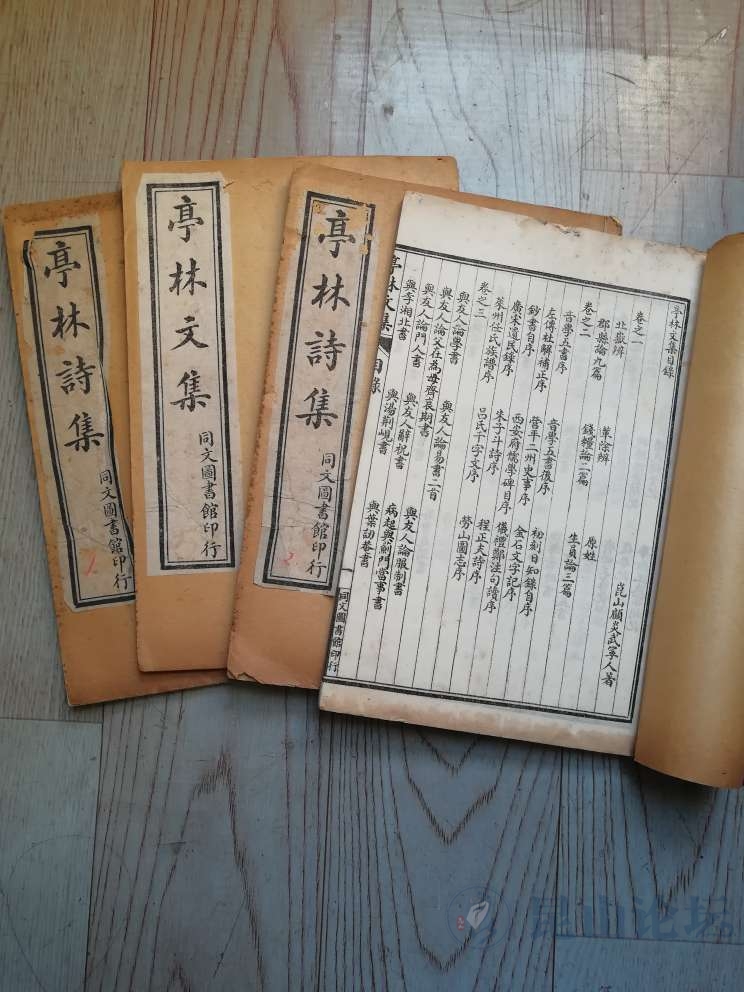 亭林詩集
同文圖書館印行
1
亭林文集
同文圖書館印行
亭林詩集
同文圖書館印行
2
亭林文集目錄
崑山顧炎武寧人著
卷之一
北嶽辨 革除辨 原姓
郡縣論九篇 錢糧論二篇 生員論三篇
卷之二
音學五書序 音學五書後序
左傳杜解補正序 營平二州史事序 初刻日知錄自序
鈔書自序 西安府儒學碑目序 金石文字記序
廣宋遺民錄序 朱子斗詩序 儀禮鄭注句讀序
萊州任氏族譜序 呂氏千字文序 程正夫詩序
勞山圖志序
卷之三
與友人論學書 與友人論易書二首
與友人論父在為母齊衰期書 與友人論服制書
與友人論門人書 與友人辭祝書 病起與薊門當事書
與李湘北書 與湯荊峴書 與葉訒菴書
亭林文集 目錄 一 同文圖書館印行
昆山论坛